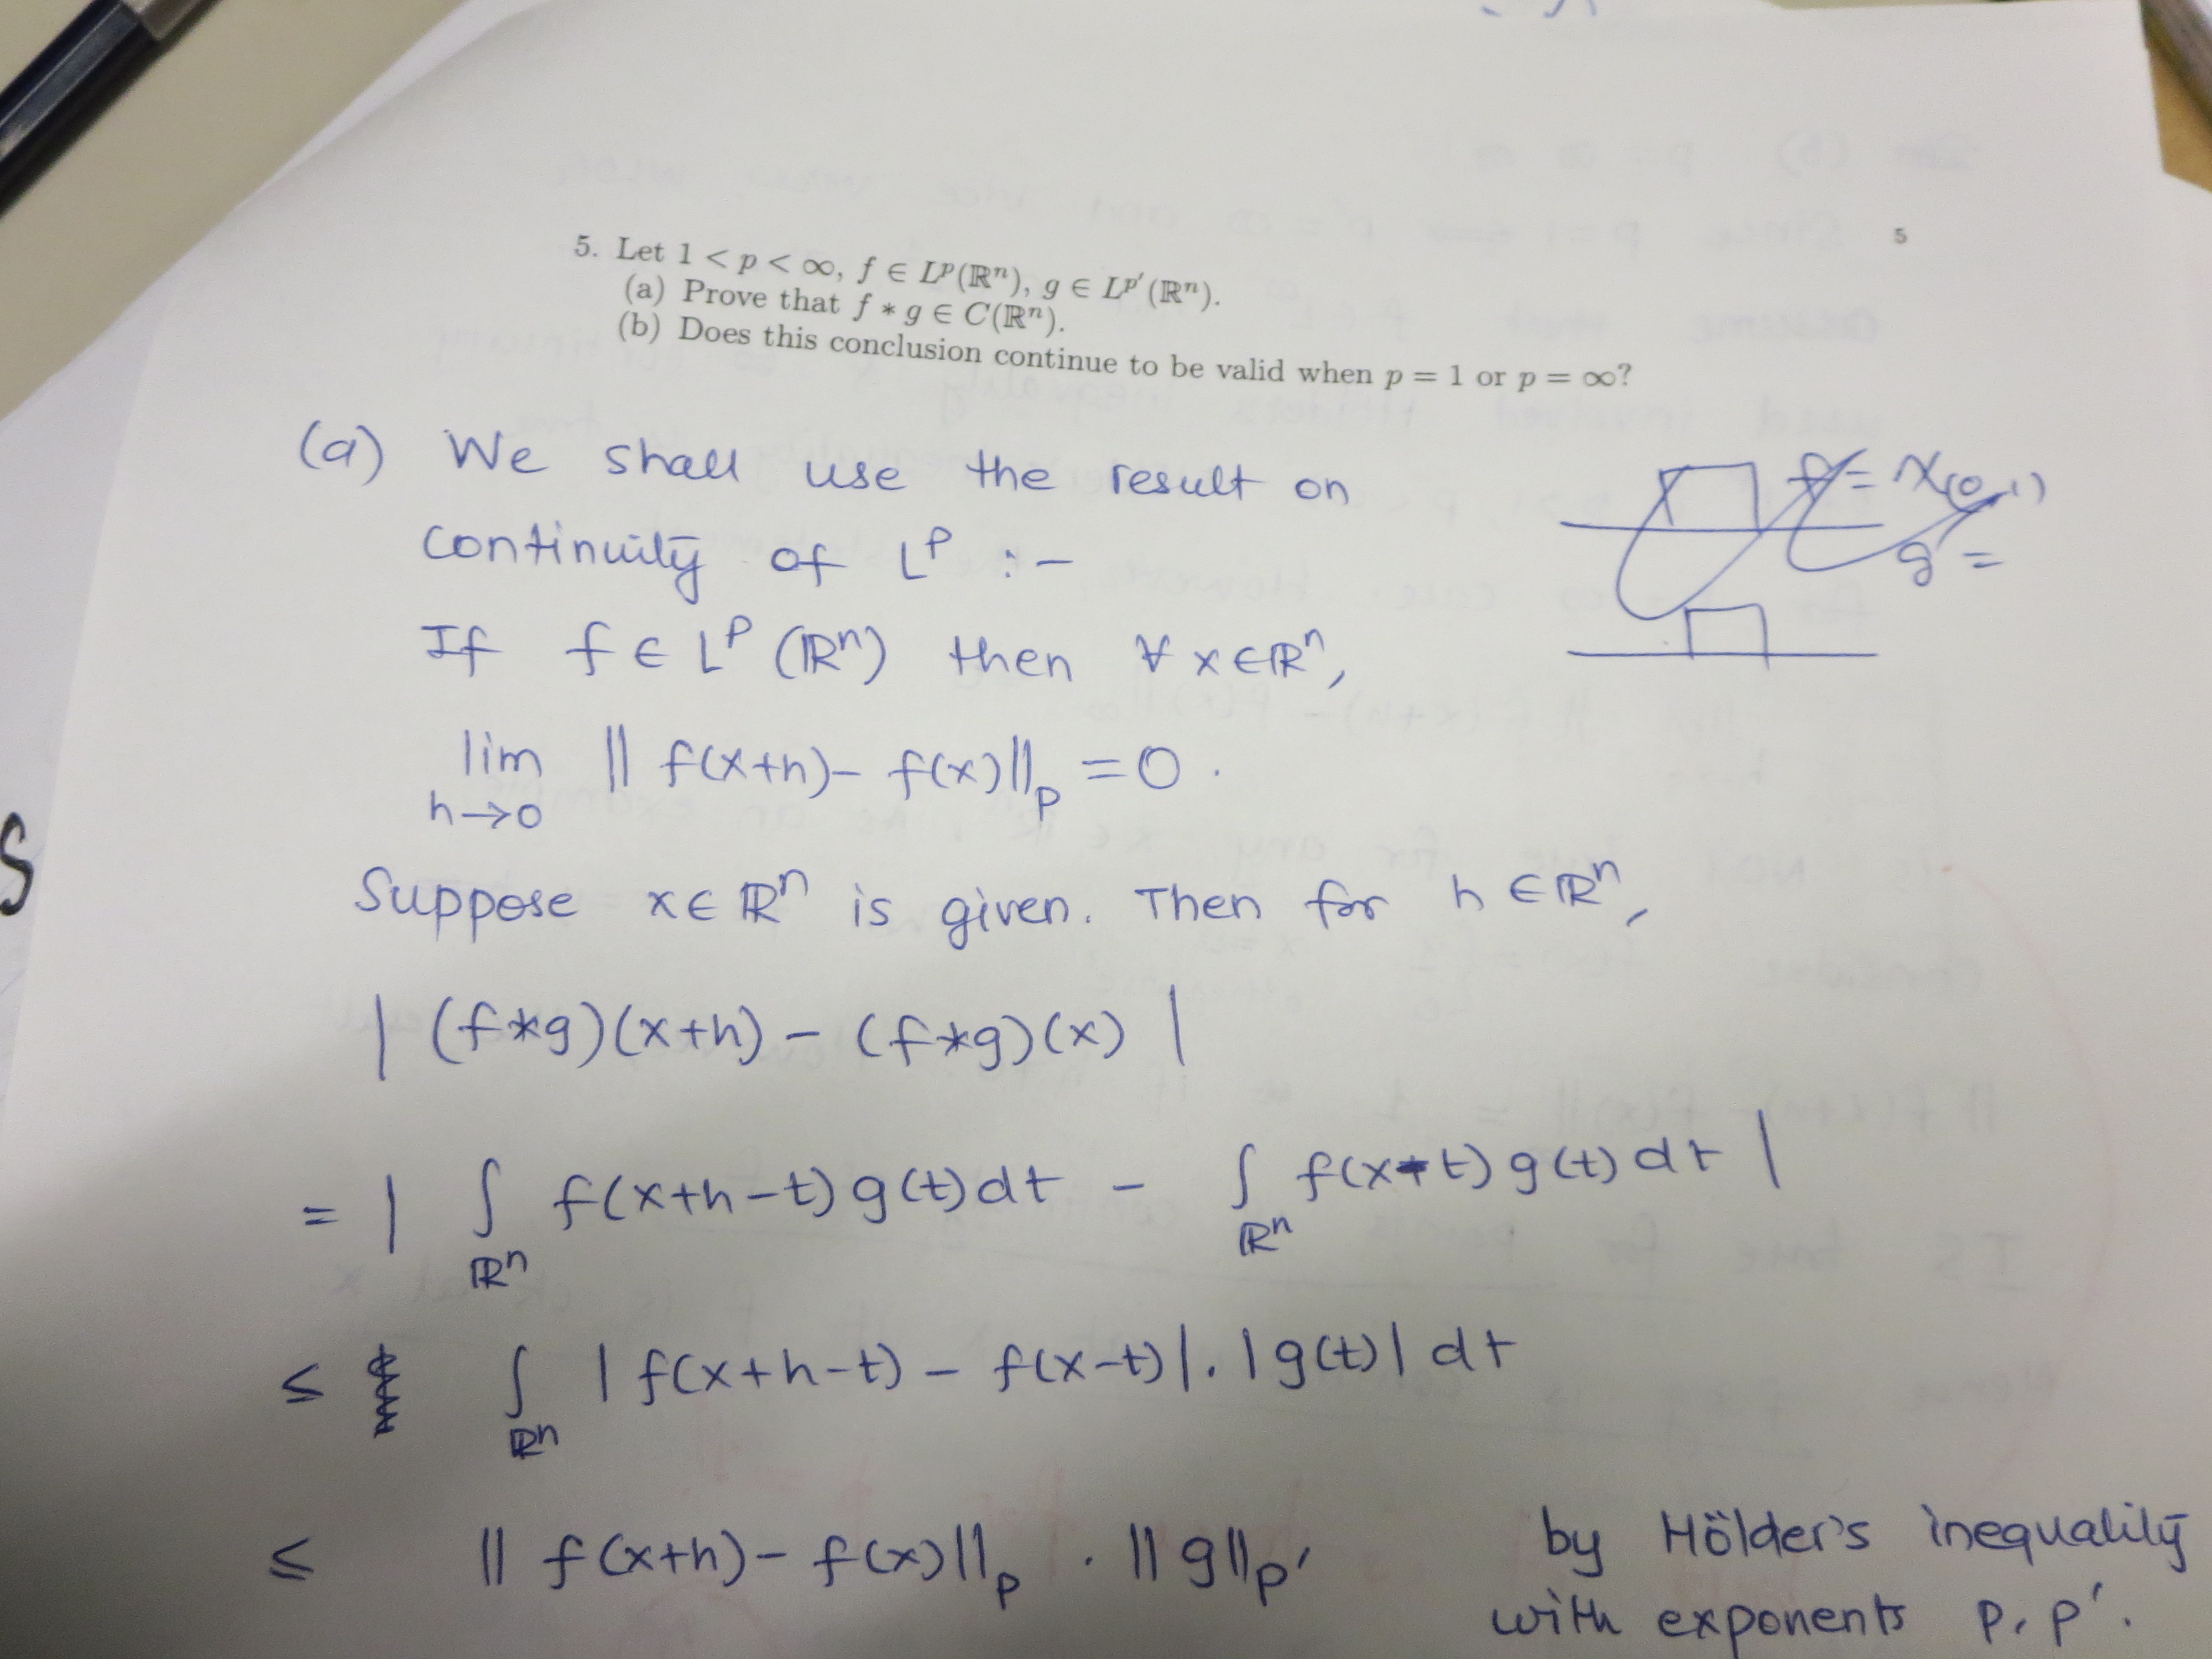 5
5. Let 1 < p < ∞, f ∈ Lᵖ(ℝⁿ), g ∈ Lᵖ′(ℝⁿ).
(a) Prove that f * g ∈ C(ℝⁿ).
(b) Does this conclusion continue to be valid when p = 1 or p = ∞?
f = χ(0,1)
g =
(a) We shall use the result on
continuity of Lᵖ :-
If f ∈ Lᵖ(ℝⁿ) then ∀ x ∈ ℝⁿ,
lim h→0 || f(x+h) - f(x)||ₚ = 0.
Suppose x ∈ ℝⁿ is given. Then for h ∈ ℝⁿ,
| (f*g)(x+h) - (f*g)(x) |
= | ∫ℝⁿ f(x+h-t) g(t) dt - ∫ℝⁿ f(x-t) g(t) dt |
≤ ∫ℝⁿ | f(x+h-t) - f(x-t)| . | g(t) | dt
≤ || f(x+h) - f(x)||ₚ . || g||ₚ′ by Hölder's inequality
with exponents p, p′.